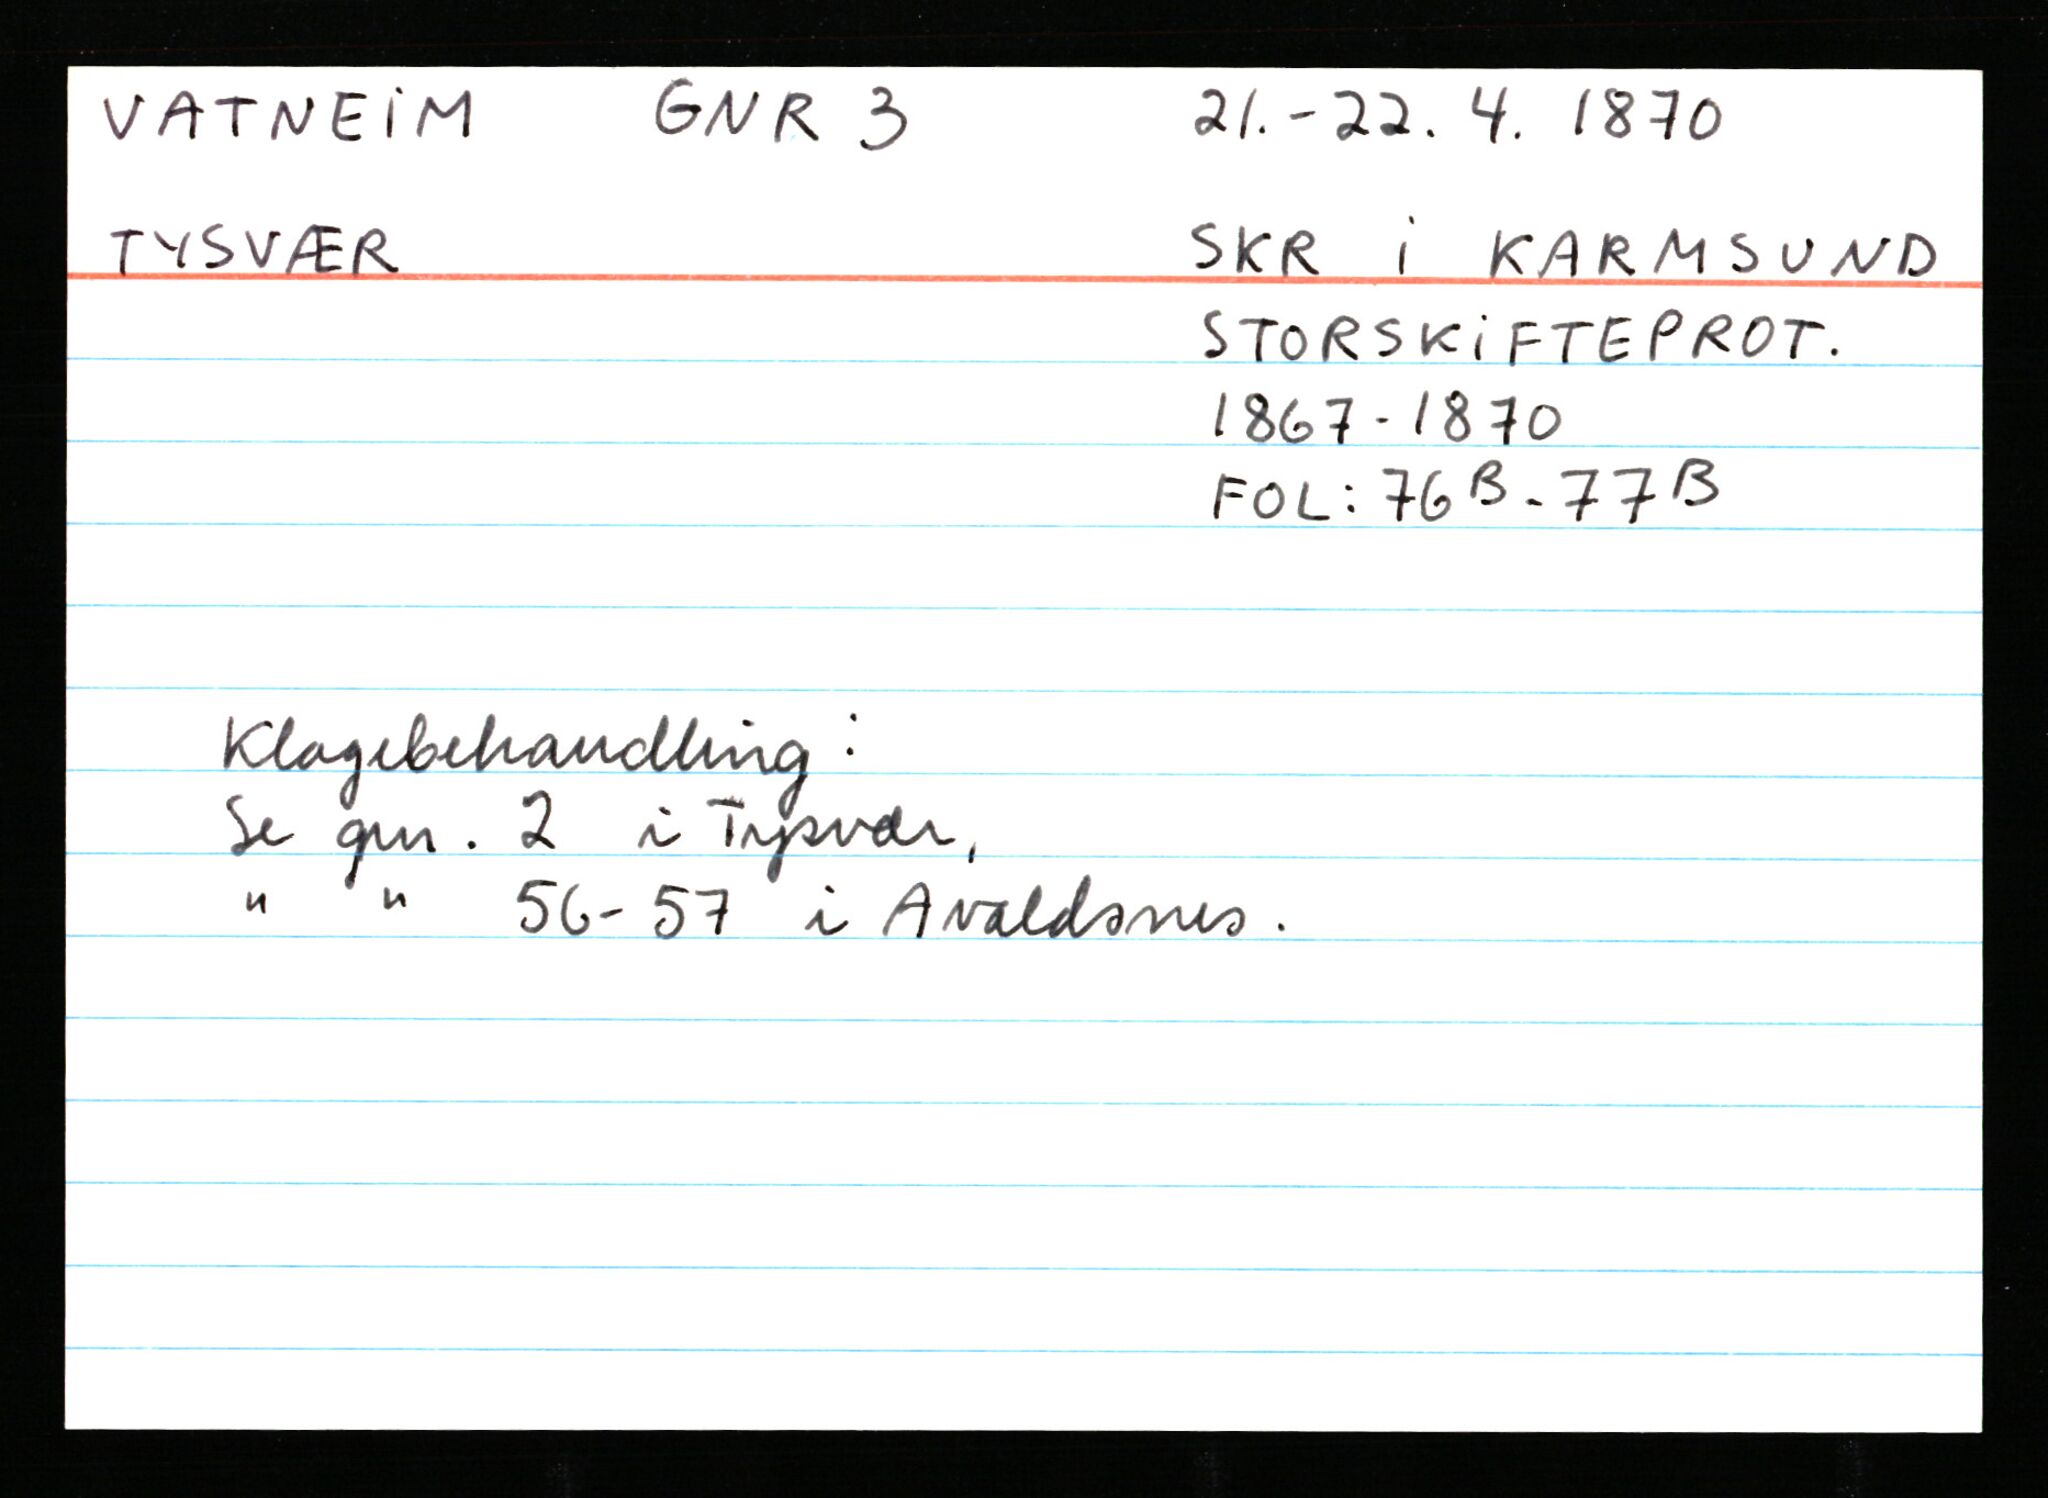 VATNEIM GNR 3 21.-22. 4. 1870
TYSVÆR SKR i KARMSUND
STORSKIFTEPROT.
1867-1870
FOL: 76B-77B
Klagebehandling:
Se gnr. 2 i Tysvær,
" " 56-57 i Avaldsnes.